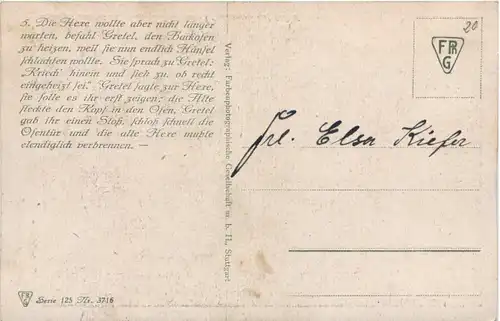 5. Die Hexe wollte aber nicht länger
warten, befahl Gretel, den Backofen
zu heizen, weil sie nun endlich Hänsel
schlachten wollte. Sie sprach zu Gretel:
„Kriech' hinein und sieh zu, ob recht
eingeheizt sei.“ Gretel sagte zur Hexe,
sie solle es ihr erst zeigen; die Alte
steckte den Kopf in den Ofen, Gretel
gab ihr einen Stoß, schloß schnell die
Ofentür und die alte Hexe mußte
elendiglich verbrennen. —
Serie 125 Nr. 3716
Verlag: Farbenphotographische Gesellschaft m. b. H., Stuttgart
20
FPh
G
Frl. Elsa Kiefer